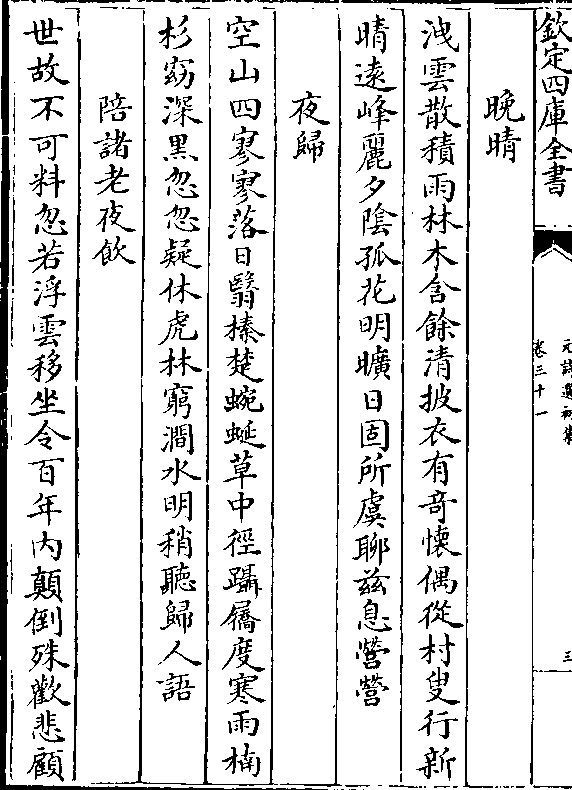 欽定四庫全書
元詩選初集
卷三十一
三
晩晴
洩雲散積雨林木含餘清披衣有竒懐偶從村叟行新
晴逺峰麗夕陰孤花明曠日固所虞聊兹息營營
夜歸
空山四寥寥落日翳榛楚蜿蜒草中徑躡屩度寒雨楠
杉窈深黒忽忽疑休虎林窮澗水明稍聽歸人語
陪諸老夜飲
世故不可料忽若浮雲移坐令百年内顛倒殊歡悲顧